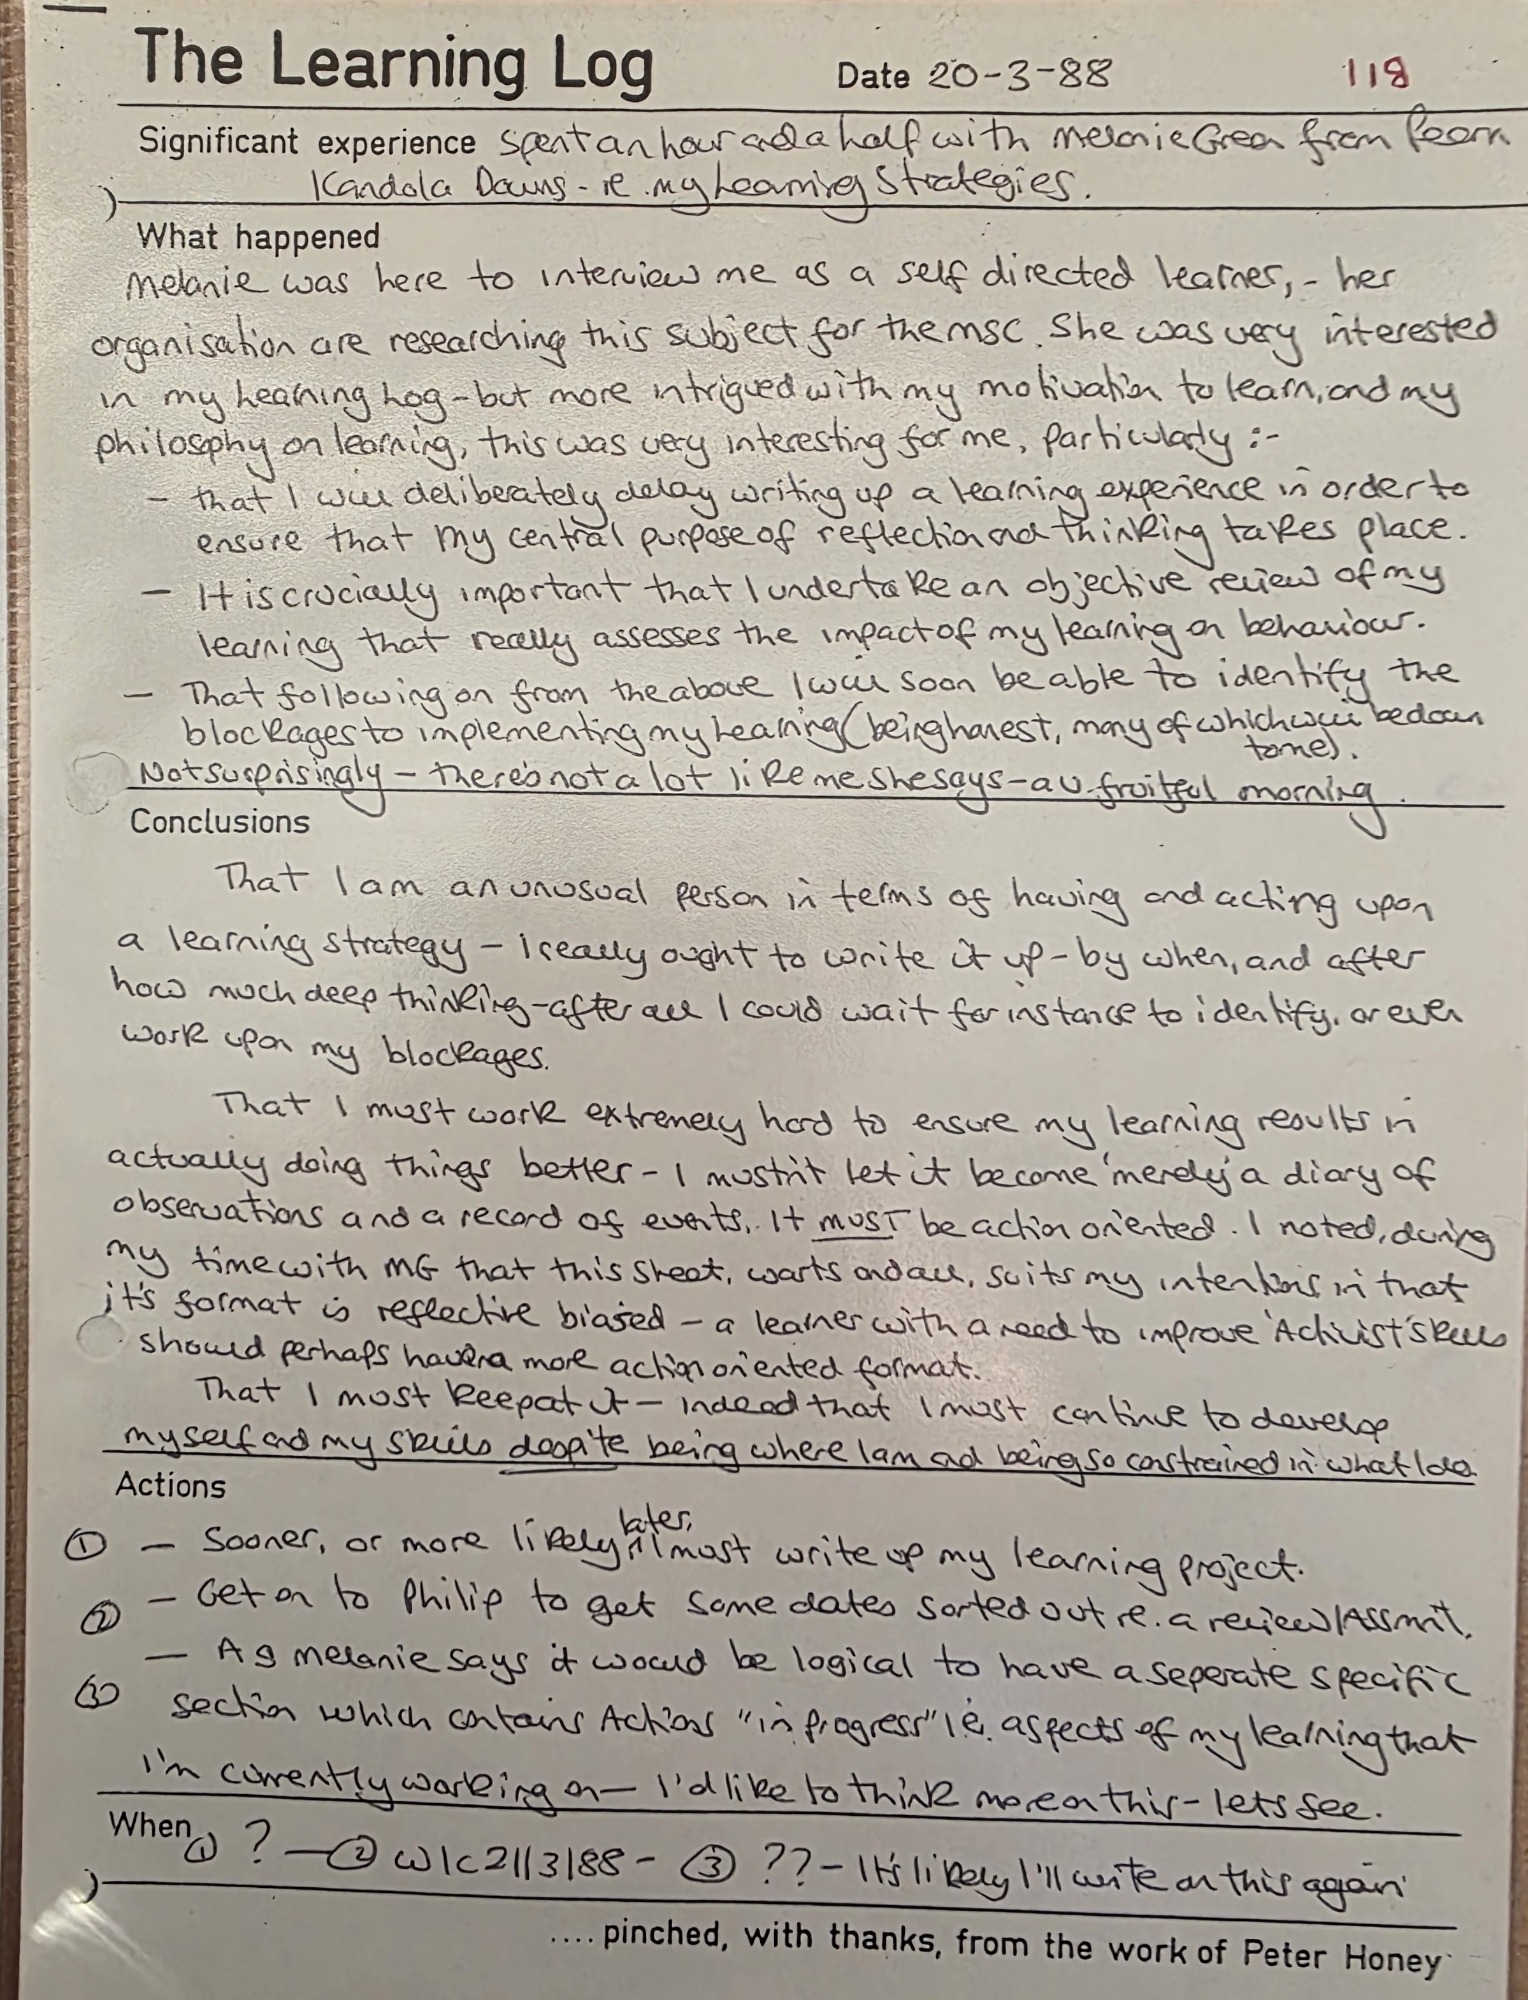 The Learning Log Date 20-3-88 118
Significant experience Spent an hour and a half with Melanie Green from Pearn
Kandola Downs - re. my Learning Strategies.
What happened
Melanie was here to interview me as a self directed learner, - her
organisation are researching this subject for the MSC. She was very interested
in my Learning Log - but more intrigued with my motivation to learn, and my
philosophy on learning, this was very interesting for me, particularly :-
- that I will deliberately delay writing up a learning experience in order to
ensure that my central purpose of reflection and thinking takes place.
- It is crucially important that I undertake an objective review of my
learning that really assesses the impact of my learning on behaviour.
- That following on from the above I will soon be able to identify the
blockages to implementing my Learning (being honest, many of which will be down
to me).
Not surprisingly - there's not a lot like me she says - a v. fruitful morning.
Conclusions
That I am an unusual person in terms of having and acting upon
a learning strategy - I really ought to write it up - by when, and after
how much deep thinking - after all I could wait for instance to identify, or even
work upon my blockages.
That I must work extremely hard to ensure my learning results in
actually doing things better - I mustn't let it become 'merely' a diary of
observations and a record of events. It MUST be action oriented. I noted, during
my time with MG that this sheet, warts and all, suits my intentions in that
it's format is reflective biased - a learner with a need to improve 'Activist' skills
should perhaps have a more action oriented format.
That I must keep at it - indeed that I must continue to develop
myself and my skills despite being where I am and being so constrained in what I do
Actions
① - Sooner, or more likely later, I must write up my learning project.
② - Get on to Philip to get some dates sorted out re. a review/Assm't.
- As Melanie says it would be logical to have a seperate specific
③ section which contains Actions "in progress" i.e. aspects of my learning that
I'm currently working on - I'd like to think more on this - lets see.
When ① ? - ② w/c 21/3/88 - ③ ?? - It's likely I'll write on this again
.... pinched, with thanks, from the work of Peter Honey